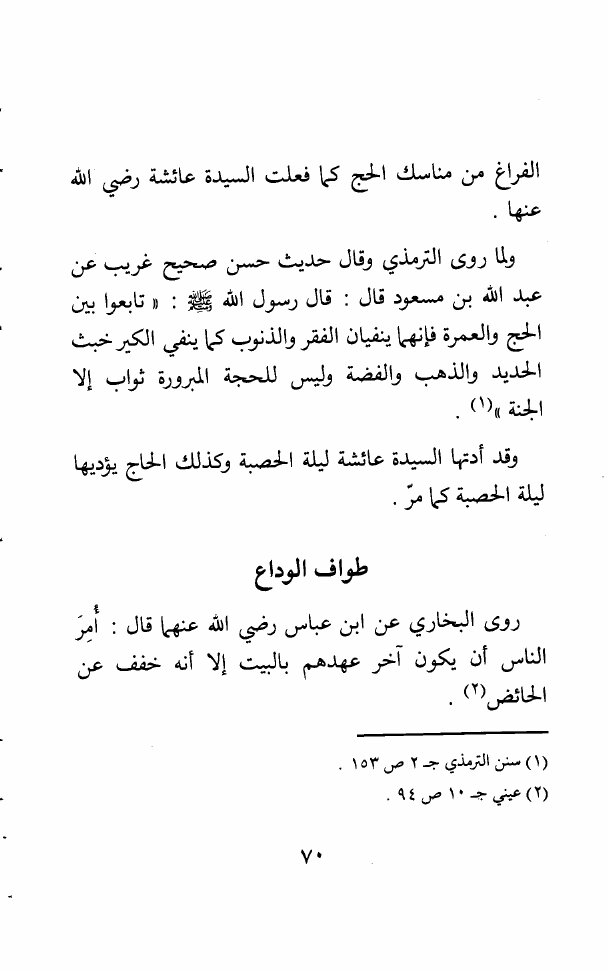 الفراغ من مناسك الحج كما فعلت السيدة عائشة رضي الله
عنها .
ولما روى الترمذي وقال حديث حسن صحيح غريب عن
عبد الله بن مسعود قال : قال رسول الله ﷺ : « تابعوا بين
الحج والعمرة فإنهما ينفيان الفقر والذنوب كما ينفي الكير خبث
الحديد والذهب والفضة وليس للحجة المبرورة ثواب إلا
الجنة »(١) .
وقد أدتها السيدة عائشة ليلة الحصبة وكذلك الحاج يؤديها
ليلة الحصبة كما مرّ .
طواف الوداع
روى البخاري عن ابن عباس رضي الله عنهما قال : أُمِرَ
الناس أن يكون آخر عهدهم بالبيت إلا أنه خفف عن
الحائض(٢) .
(١) سنن الترمذي جـ ٢ ص ١٥٣ .
(٢) عيني جـ ١٠ ص ٩٤ .
٧٠